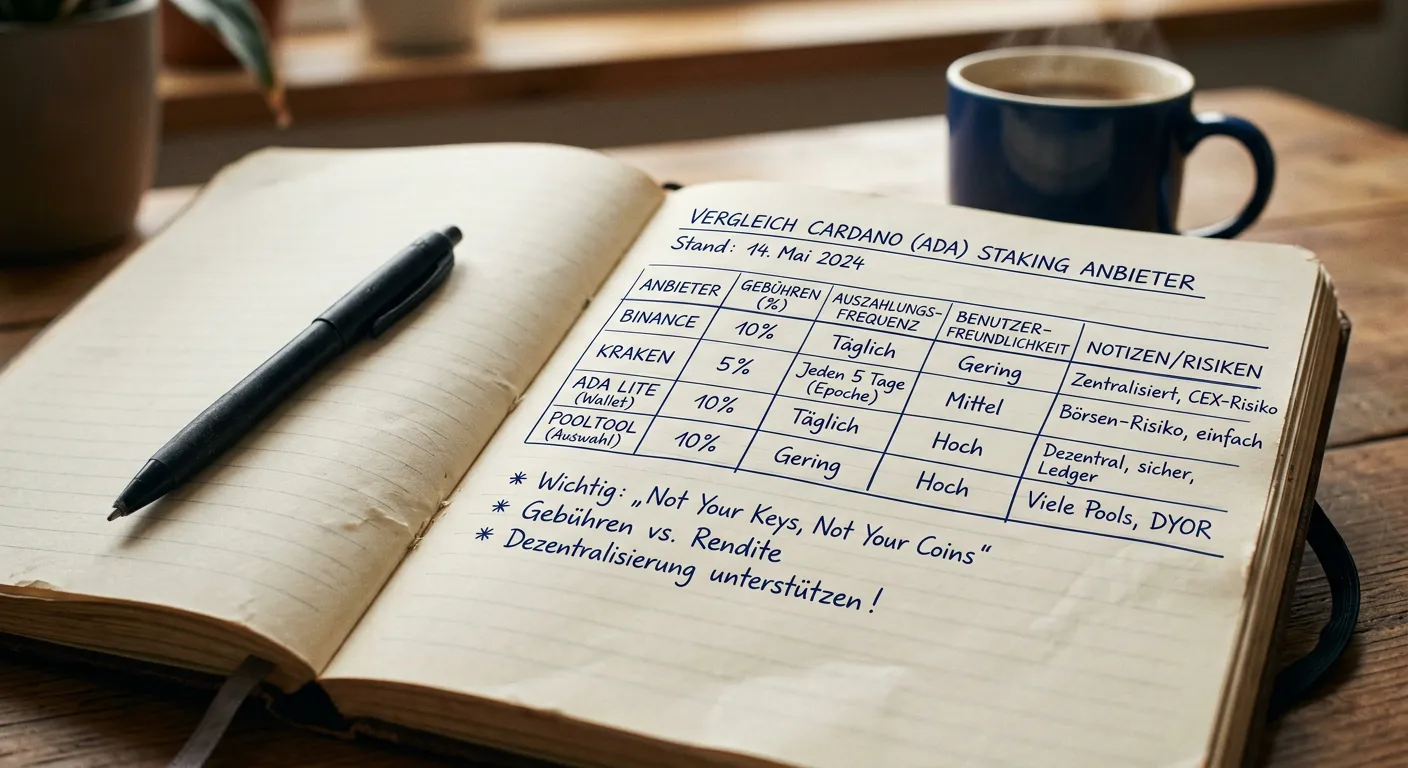 VERGLEICH CARDANO (ADA) STAKING ANBIETER
Stand: 14. Mai 2024
ANBIETER GEBÜHREN (%) AUSZAHLUNGS-FREQUENZ BENUTZER-FREUNDLICHKEIT NOTIZEN/RISIKEN
BINANCE 10% Täglich Gering Zentralisiert, CEX-Risiko
KRAKEN 5% Jeden 5 Tage (Epoche) Mittel Börsen-Risiko, einfach
ADA LITE (Wallet) 10% Täglich Hoch Dezentral, sicher, Ledger
POOLTOOL (Auswahl) 10% Gering Hoch Viele Pools, DYOR
* Wichtig: „Not Your Keys, Not Your Coins“
* Gebühren vs. Rendite
* Dezentralisierung unterstützen!